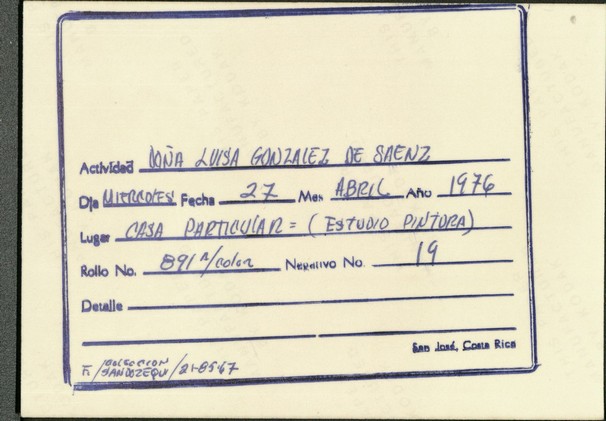 Actividad DOÑA LUISA GONZALEZ DE SAENZ
Dia MIERCOLES Fecha 27 Mes ABRIL Año 1976
Lugar CASA PARTICULAR = (ESTUDIO PINTORA)
Rollo No. 891 /color Negativo No. 19
Detalle
San José, Costa Rica
COLECCION
SANDOZEQUI /21-8567